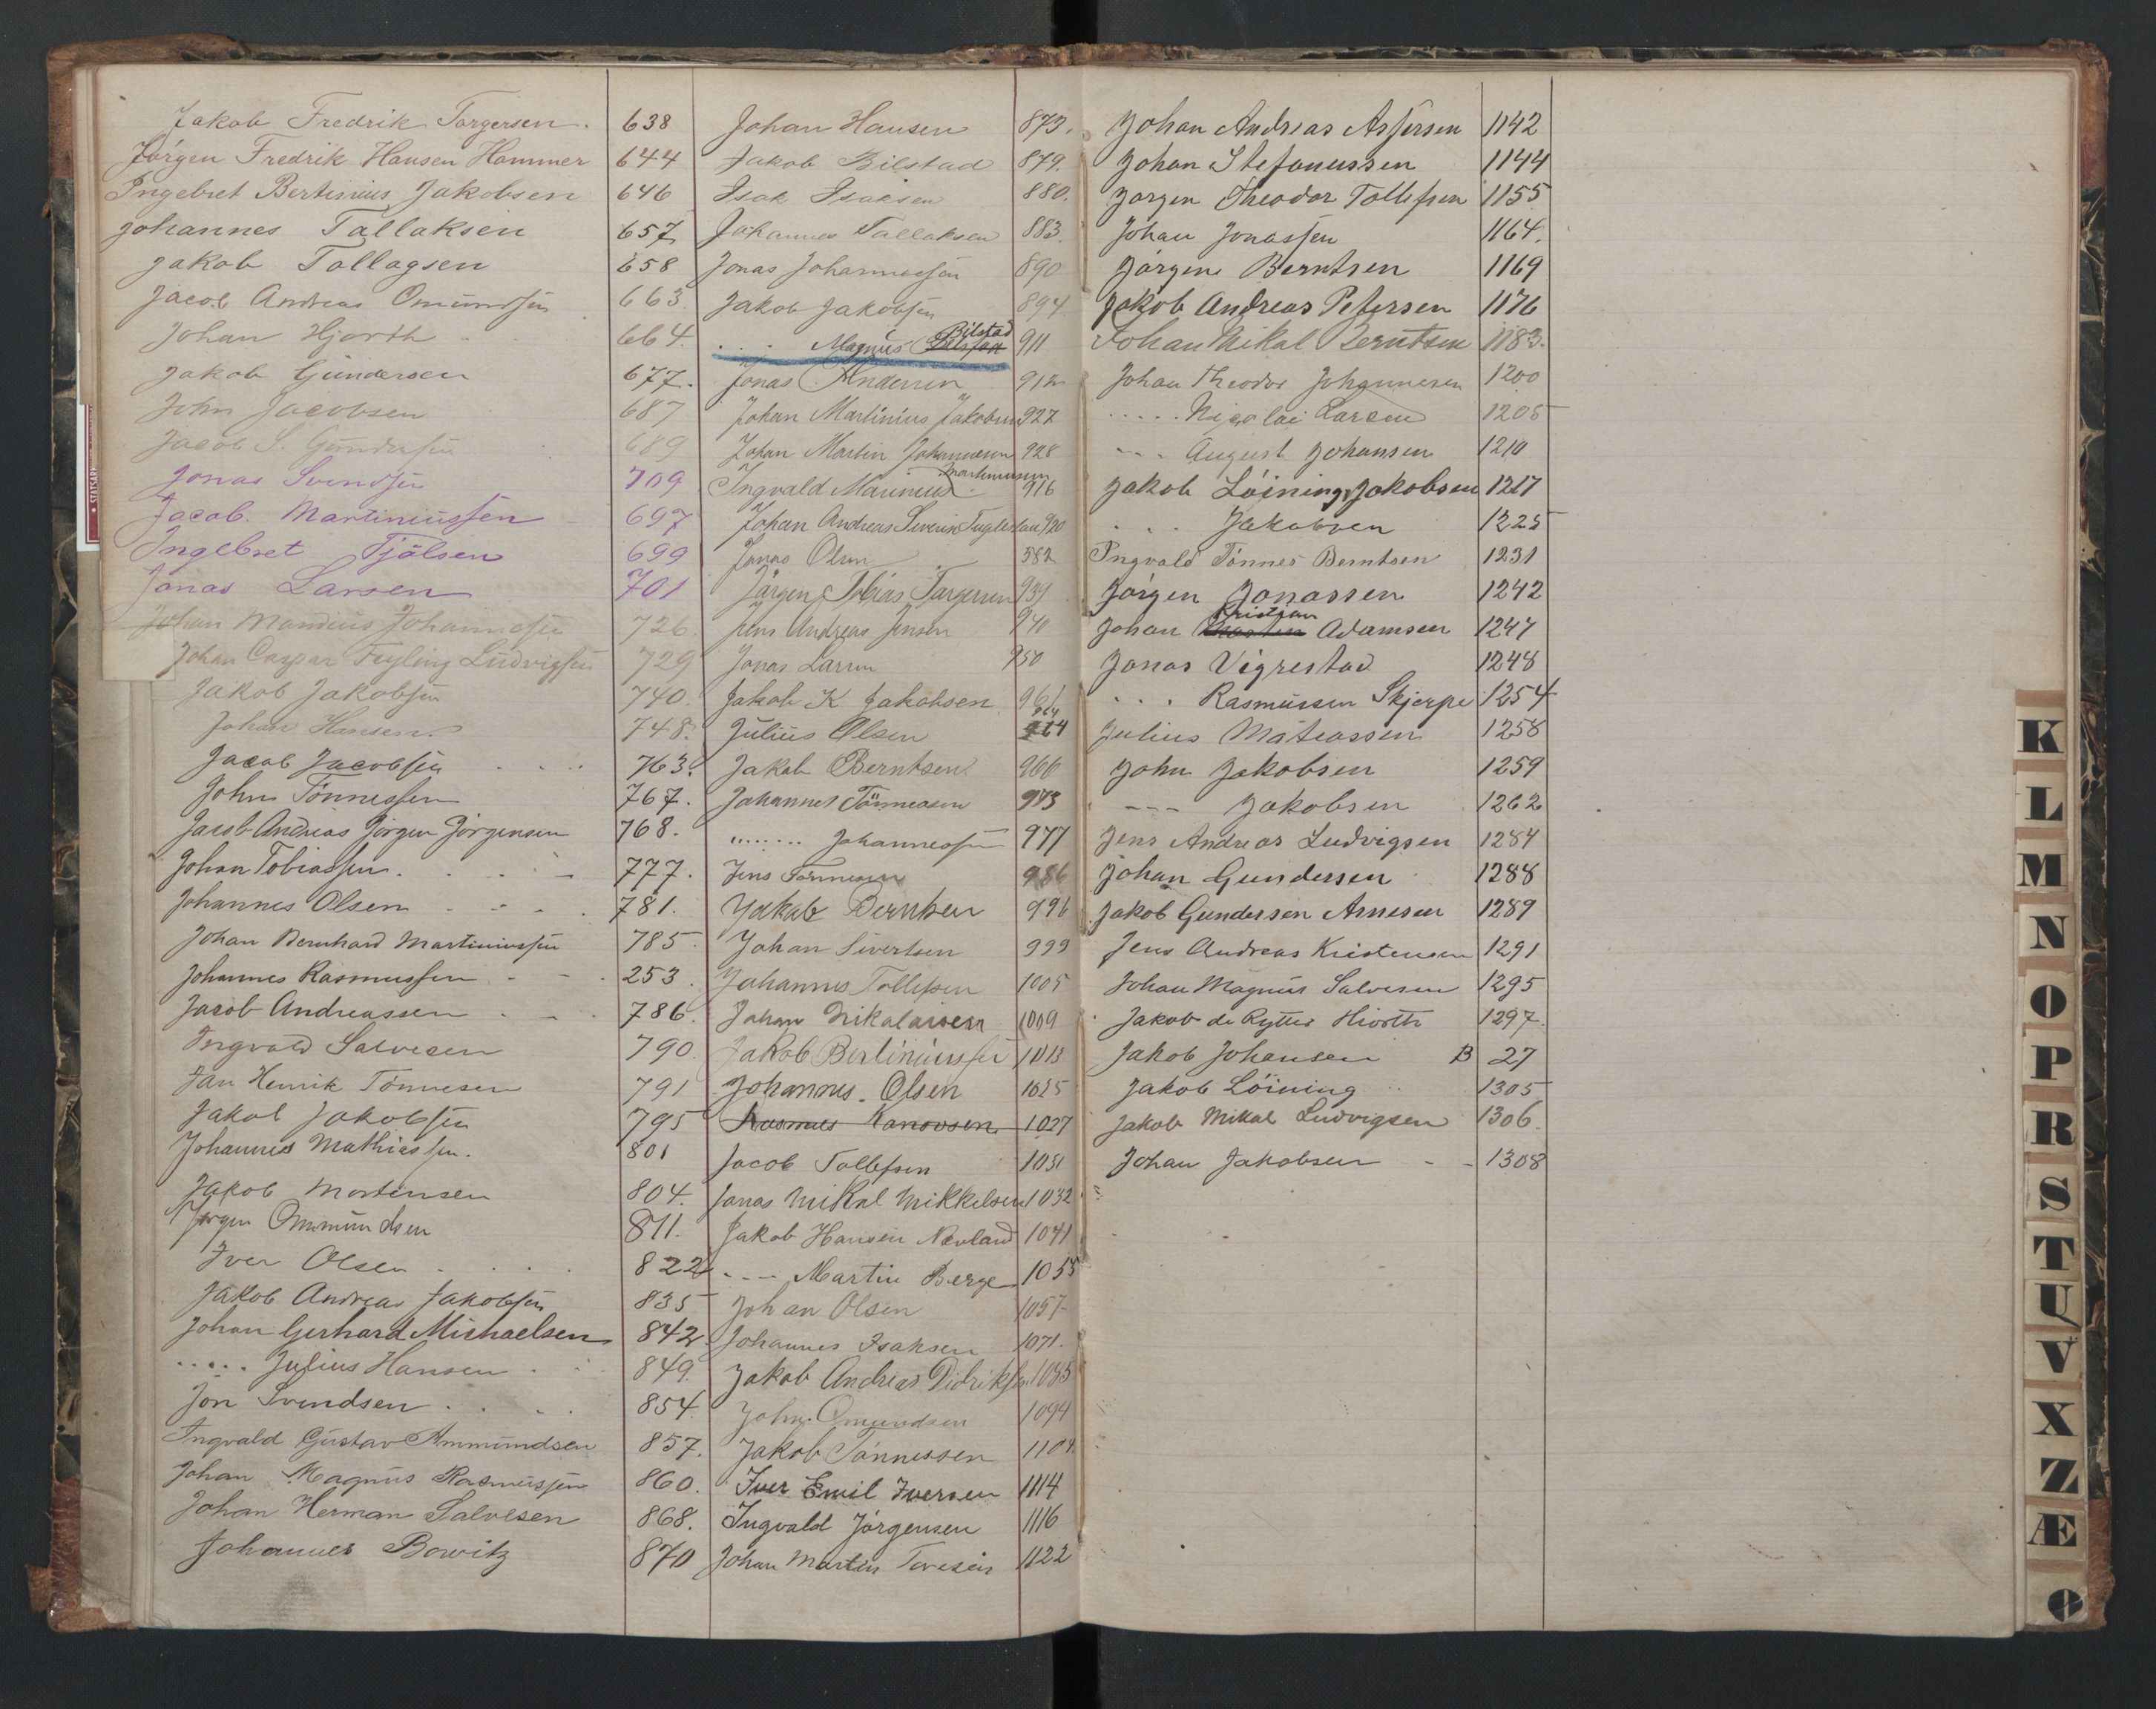 Jakob Fredrik Torgersen. 638
Jörgen Fredrik Hansen Hammer 644
Ingebret Bertinius Jakobsen 646
Johannes Tallaksen 657
Jakob Tollagsen 658
Jacob Andreas Omundsen 663
Johan Hjorth 664.
Jakob Gundersen 677.
John Jacobsen 687
Jacob S. Gundersen 689
Jonas Svendsen 709
Jacob. Martiniussen 697
Ingebret Tjölsen 699
Jonas Larsen 701
Johan Mandius Johannesen 726.
Johan Caspar Feyling Ludvigsen 729
Jakob Jakobsen 740.
Johan Hansen. 748.
Jacob Jacobsen 763.
John Tönnessen 767.
Jacob Andreas Jörgen Jörgensen 768.
Johan Tobiassen. 777.
Johannes Olsen 781.
Johan Bernhard Martiniussen 785.
Johannes Rasmussen 253.
Jacob Andreassen 786.
Ingvald Salvesen 790.
Jan Henrik Tönnesen 791
Jakob Jakobsen 795
Johannes Mathiassen. 801
Jakob Mortensen 804.
Jörgen Ommundsen 811.
Iver Olsen 822
Jakob Andreas Jakobsen 835
Johan Gerhard Michaelsen 842
..... Julius Hansen 849.
Jon Svendsen 854
Ingvald Gustav Ammundsen 857.
Johan Magnus Rasmussen 860.
Johan Herman Salvesen 868.
Johannes Bowitz 870
Johan Hansen 873.
Jakob Bilstad 879.
Isak Isaksen 880.
Johannes Tallaksen 883.
Jonas Johannesen 890
Jakob Jakobsen 894
Bilstad
.... Magnus 911
Jonas Andersen 912
Johan Martinius Jakobsen 927
Johan Martin Johannesen 928
Martinussen
Ingvald Marinius 916
Johan Andreas Severin 920
Jonas Olsen 582
Jörgen Tobias Torgersen 931
Jens Andreas Jensen 940
Jonas Larsen 950
Jakob K Jakobsen 961
Julius Olsen 964
Jakob Berntsen 966
Johannes Tönnesen 973
........ Johannesen 977
Jens Tönnesen 986
Jakob Berntsen 996
Johan Sivertsen 999
Johannes Tollefsen 1005
Johan Nikolaisen 1009
Jakob Bertiniussen 1013
Johannes. Olsen 1025
Rasmus 1027
Jacob Tollefsen 1031
Jonas Mikal Mikkelsen 1032
Jakob Hansen Nævland 1041
---- Martin Berge 1055
Johan Olsen 1057
Johannes Isaksen 1071.
Jakob Andreas Didriksen 1085
John Omundsen 1094
Jakob Tönnessen 1104.
Iver Emil Iversen 1114
Ingvald Jörgensen 1116
Johan Martin 1122
Johan Andreas Assersen 1142
Johan Stefanussen 1144
Jörgen Theodor Tollefsen 1155
Johan Jonassen 1164.
Jörgen Berntsen 1169
Jakob Andreas Petersen 1176
Johan Mikal Berntsen 1183.
Johan Theodor Johannesen 1200
..... Nicolai Larsen 1205
--- August Johansen 1210
Jakob Löining Jakobsen 1217
. . . Jakobsen 1225
Ingvald Tönnes Berntsen 1231
Jörgen Jonassen 1242
Kristian
Johan Adamsen 1247
Jonas Vigrestad 1248
. . . Rasmussen Skjerpe 1254
Julius Matiassen 1258
John Jakobsen 1259
--- Jakobsen 1262
Jens Andreas Ludvigsen 1284
Johan Gundersen 1288
Jakob Gundersen Arnesen 1289
Jens Andreas Kristensen 1291
Johan Magnus Salvesen 1295
Jakob de Rytter Hiorth 1297.
Jakob Johansen B 27
Jakob Löining 1305
Jakob Mikal Ludvigsen 1306.
Johan Jakobsen - - 1308
K
L
M
N
O
P
R
S
T
U
V
X
Z
Æ
Ø